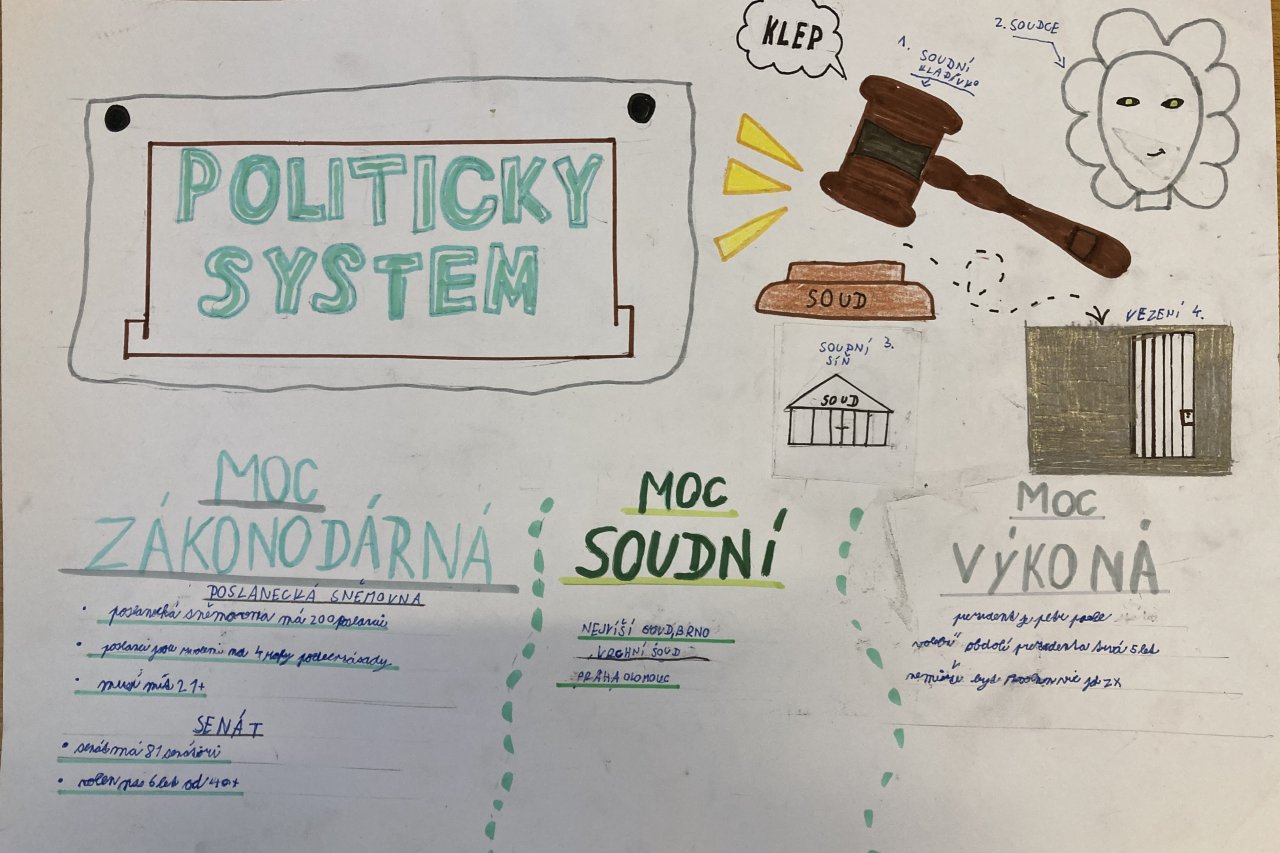 POLITICKY
SYSTEM
KLEP
1. SOUDNÍ
KLADÍVKO
2. SOUDCE
SOUD
SOUDNÍ 3.
SÍŇ
SOUD
VEZENÍ 4.
MOC
ZÁKONODÁRNÁ
POSLANECKÁ SNĚMOVNA
• poslanecká sněmovna má 200 poslanců
• poslanci jsou na 4 roky
• musí mít 21+
SENÁT
• senát má 81 senátorů
• volen na 6 let od 40+
MOC
SOUDNÍ
NEJVIŠÍ SOUD, BRNO
VRCHNÍ SOUD
PRÁHA OLOMOUC
MOC
VÝKONÁ
prezident je petr
volební období prezidenta trvá 5 let
nemůže být než 2x